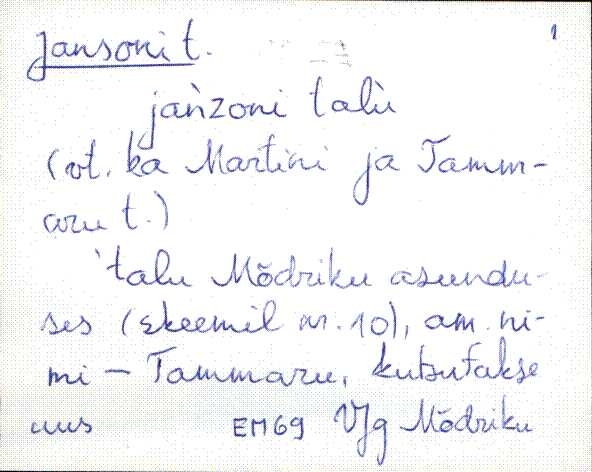 Jansoni t. 1
jaǹzoni talù
(vt. ka Martini ja Tamm-
aru t.)
'talu Mõdriku asundu-
ses (skeemil nr. 10), am. ni-
mi – Tammaru, kutsutakse
uus EM69 VJg Mõdriku